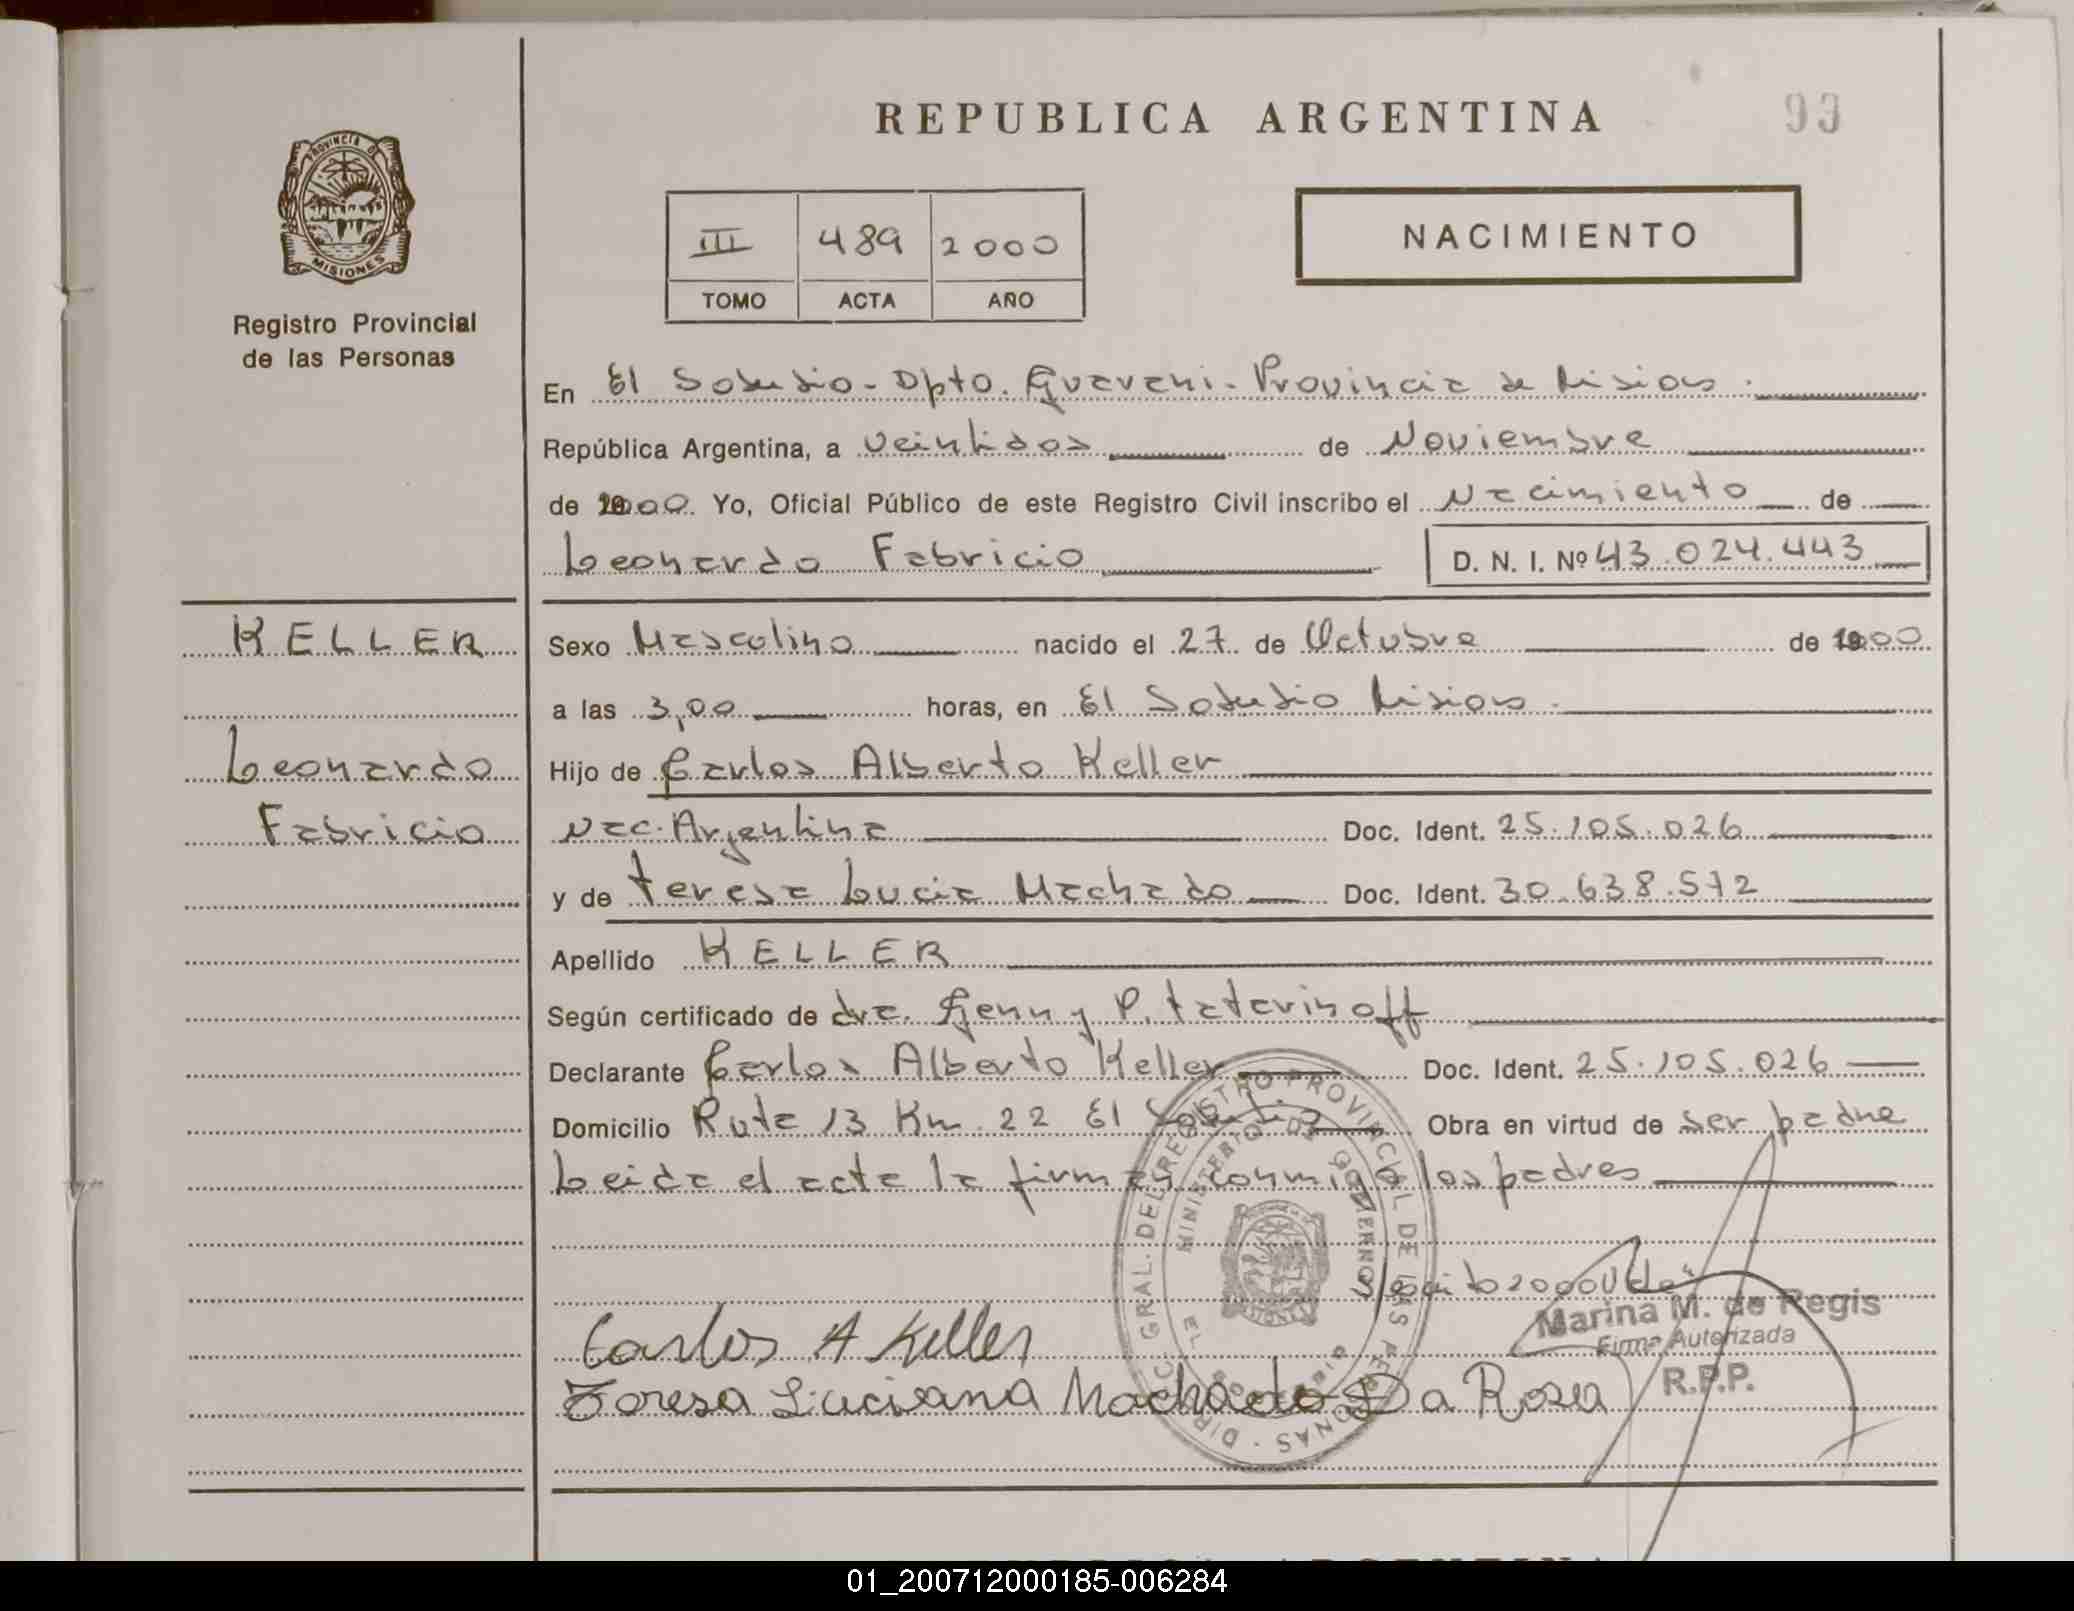 REPUBLICA ARGENTINA
93
PROVINCIA DE
MISIONES
Registro Provincial
de las Personas
III 489 2000
TOMO ACTA AÑO
NACIMIENTO
En El Soberbio - Dpto. Guarani - Provincia de Misiones.
República Argentina, a Veintidos de Noviembre
de 2000. Yo, Oficial Público de este Registro Civil inscribo el Nacimiento de
Leonardo Fabricio
D. N. I. Nº 43.024.443
KELLER
Leonardo
Fabricio
Sexo Masculino nacido el 27 de Octubre de 2000
a las 3,00 horas, en El Soberbio Misiones.
Hijo de Carlos Alberto Keller
Nac. Argentina Doc. Ident. 25.105.026
y de Teresa Lucia Machado Doc. Ident. 30.638.572
Apellido KELLER
Según certificado de dra. Genny P. Tatarinoff
Declarante Carlos Alberto Keller Doc. Ident. 25.105.026
Domicilio Ruta 13 Km. 22 El Soberbio Obra en virtud de ser padre
Leida el acta la firman conmigo los padres
2000 Vale"
Carlos A Keller
Teresa Luciana Machado Da Rosa
Marina M. de Regis
Firma Autorizada
R.P.P.
DIREC. GRAL. DEL REGISTRO PROVINCIAL DE LAS PERSONAS
MINISTERIO DE GOBIERNO
EL SOBERBIO
01_200712000185-006284